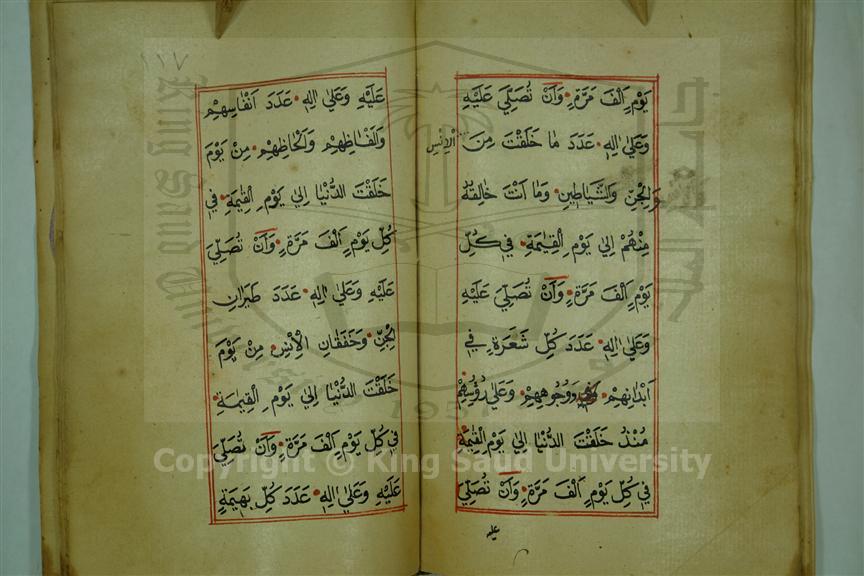 يَوْمٍ اَلْفَ مَرَّةٍ وَاَنْ تُصَلِّيَ عَلَيْهِ
وَعَلٰى اٰلِهٖ عَدَدَ مَا خَلَقْتَ مِنَ الْاِنْسِ
وَالْجِنِّ وَالشَّيَاطِينِ وَمَا اَنْتَ خَالِقُهُ
مِنْهُمْ اِلٰى يَوْمِ الْقِيٰمَةِ فِي كُلِّ
يَوْمٍ اَلْفَ مَرَّةٍ وَاَنْ تُصَلِّيَ عَلَيْهِ
وَعَلٰى اٰلِهٖ عَدَدَ كُلِّ شَعَرَةٍ فِي
اَبْدَانِهِمْ وَوُجُوهِهِمْ وَعَلٰى رُؤُسِهِمْ
مُنْذُ خَلَقْتَ الدُّنْيَا اِلٰى يَوْمِ الْقِيٰمَةِ
فِي كُلِّ يَوْمٍ اَلْفَ مَرَّةٍ وَاَنْ تُصَلِّيَ
عليه
١١٧
عَلَيْهِ وَعَلٰى اٰلِهٖ عَدَدَ اَنْفَاسِهِمْ
وَاَلْفَاظِهِمْ وَاَلْحَاظِهِمْ مِنْ يَوْمَ
خَلَقْتَ الدُّنْيَا اِلٰى يَوْمِ الْقِيٰمَةِ فِي
كُلِّ يَوْمٍ اَلْفَ مَرَّةٍ وَاَنْ تُصَلِّيَ
عَلَيْهِ وَعَلٰى اٰلِهٖ عَدَدَ طَيَرَانِ
الْجِنِّ وَخَفَقَانِ الْاِنْسِ مِنْ يَوْمَ
خَلَقْتَ الدُّنْيَا اِلٰى يَوْمِ الْقِيٰمَةِ
فِي كُلِّ يَوْمٍ اَلْفَ مَرَّةٍ وَاَنْ تُصَلِّيَ
عَلَيْهِ وَعَلٰى اٰلِهٖ عَدَدَ كُلِّ بَهِيمَةٍ
King Saud University
1957
Copyright © King Saud University